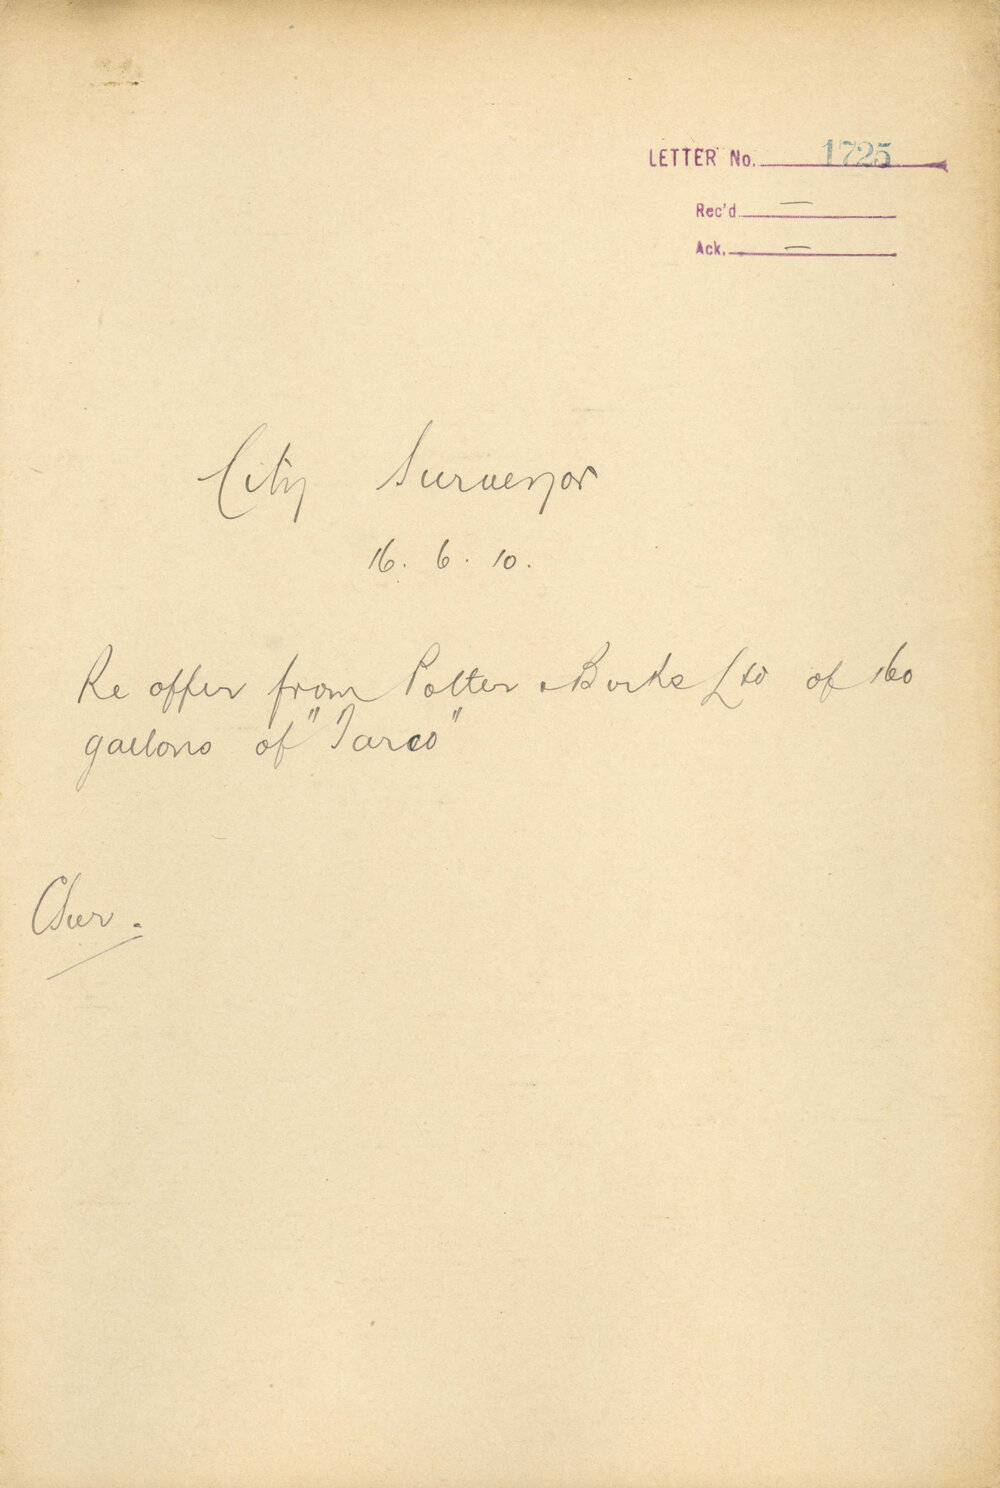 LETTER No. 1725
Rec'd —
Ack. —
City Surveyor
16. 6. 10.
Re offer from Potter & Birks Ltd of 160
gallons of "Tarco"
CSur.